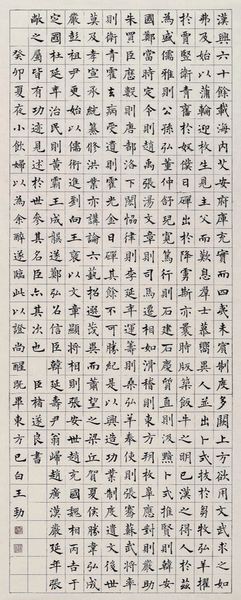 漢興六十餘載海內艾安府庫充實而四夷未賓制度多闕上方欲用文武求之如
弗及始以蒲輪迎枚生見主父而歎息群士慕嚮異人並出卜式拔於芻牧弘羊擢
於賈豎衛青奮於奴僕日磾出於降虜斯亦曩時版築飯牛之明已漢之得人於茲
為盛儒雅則公孫弘董仲舒兒寬篤行則石建石慶質直則汲黯卜式推賢則韓安
國鄭當時定令則趙禹張湯文章則司馬遷相如滑稽則東方朔枚皋應對則嚴助
朱買臣歷數則唐都洛下閎協律則李延年運籌則桑弘羊奉使則張騫蘇武將率
則衛青霍去病受遺則霍光金日磾其餘不可勝紀是以興造功業制度遺文後世
莫及孝宣承統纂修洪業亦講論六藝招選茂異而蕭望之梁丘賀夏侯勝韋弘成
嚴彭祖尹更始以儒術進劉向王褒以文章顯將相則張安世趙充國魏相丙吉于
定國杜延年治民則黃霸王成龔遂鄭弘召信臣韓延壽尹翁歸趙廣漢嚴延年張
敞之屬皆有功迹見述於世參其名臣亦其次也 臣褚遂良書
癸卯夏夜小飲婦以為余醉遂臨此以證尚醒既畢東方已白 王勁